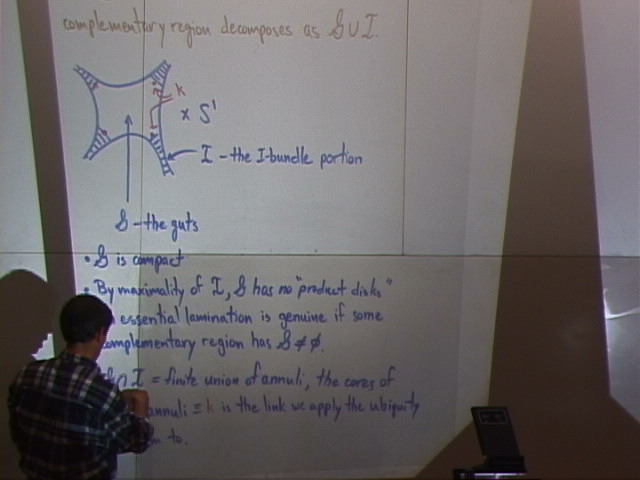 complementary region decomposes as 𝒢 ∪ I.
k
× S¹
I - the I-bundle portion
𝒢 - the guts
• 𝒢 is compact
• By maximality of I, 𝒢 has no "product disks"
essential lamination is genuine if some
complementary region has 𝒢 ≠ ∅.
∩ I = finite union of annuli, the cores of
annuli ≡ k is the link we apply the ubiquity
to.